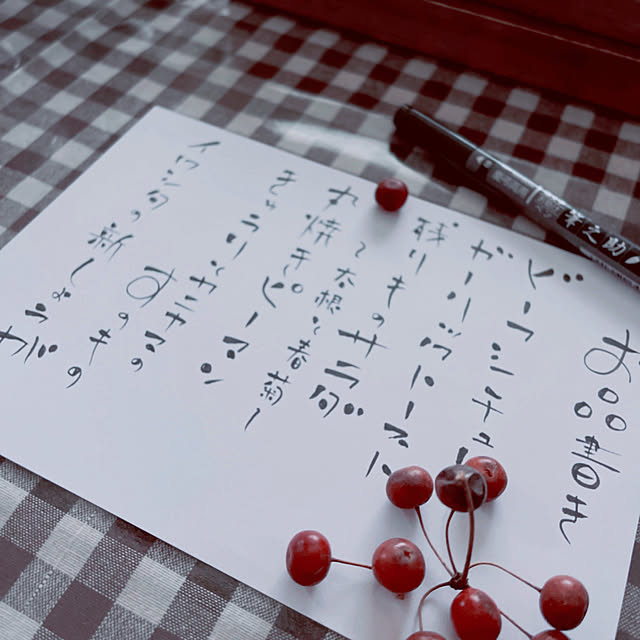 お品書き
ビーフシチュー
ガーリックトースト
残りものサラダ
〜大根と春菊〜
丸焼きピーマン
きゅうりとカニカマの
すのもの
の新しょ
筆之助